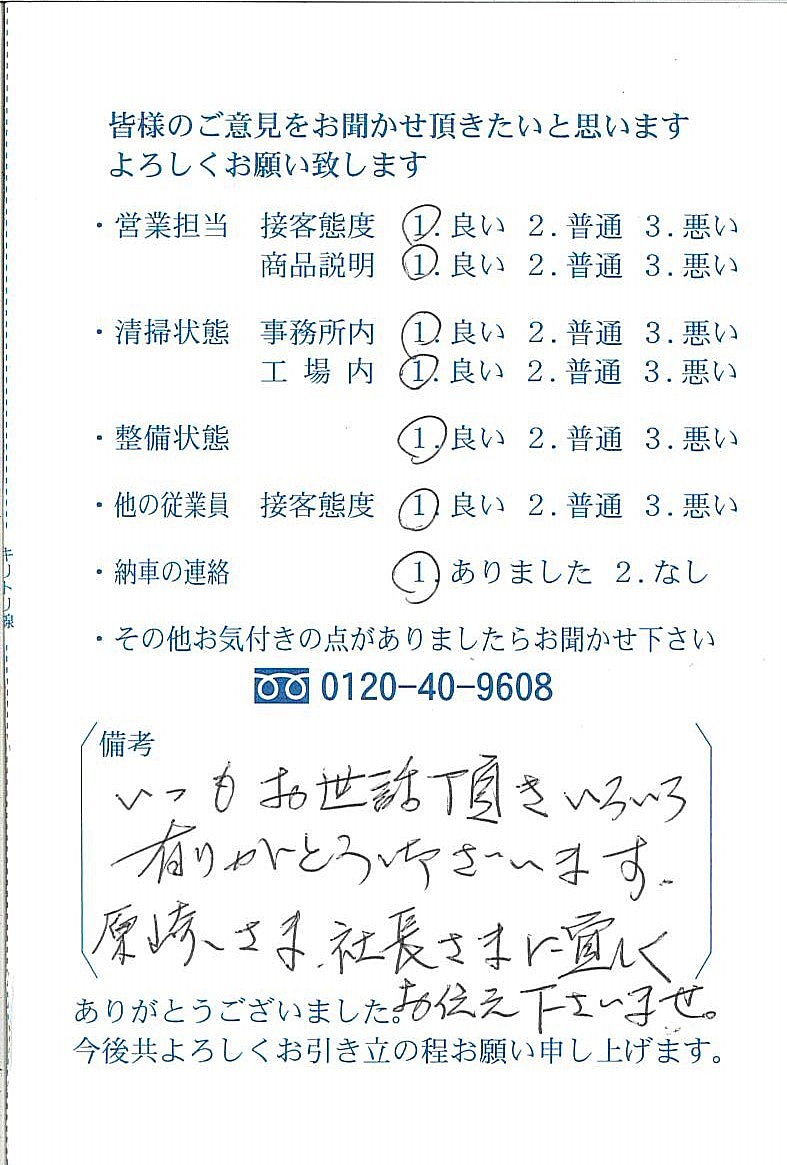 皆様のご意見をお聞かせ頂きたいと思います
よろしくお願い致します
・営業担当 接客態度 1.良い 2.普通 3.悪い
商品説明 1.良い 2.普通 3.悪い
・清掃状態 事務所内 1.良い 2.普通 3.悪い
工場内 1.良い 2.普通 3.悪い
・整備状態 1.良い 2.普通 3.悪い
・他の従業員 接客態度 1.良い 2.普通 3.悪い
・納車の連絡 1.ありました 2.なし
・その他お気付きの点がありましたらお聞かせ下さい
0120-40-9608
キリトリ線
備考
いつもお世話頂きいろいろ
有りがとう御ざいます.
原崎さま、社長さまに宜しく
お伝え下さいませ。
ありがとうございました。
今後共よろしくお引き立の程お願い申し上げます。